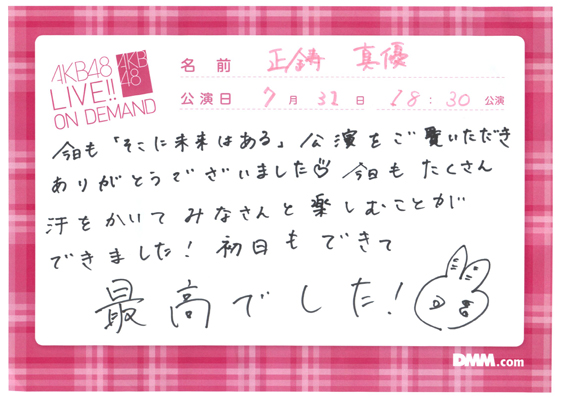 AKB48
LIVE!!
ON DEMAND
AKB
48
名前 正鋳 真優
公演日 7月31日 18:30 公演
今日も「そこに未来はある」公演をご覧いただき
ありがとうございました 今日も たくさん
汗をかいて みなさんと 楽しむことが
できました! 初日もできて
最高でした!
DMM.com